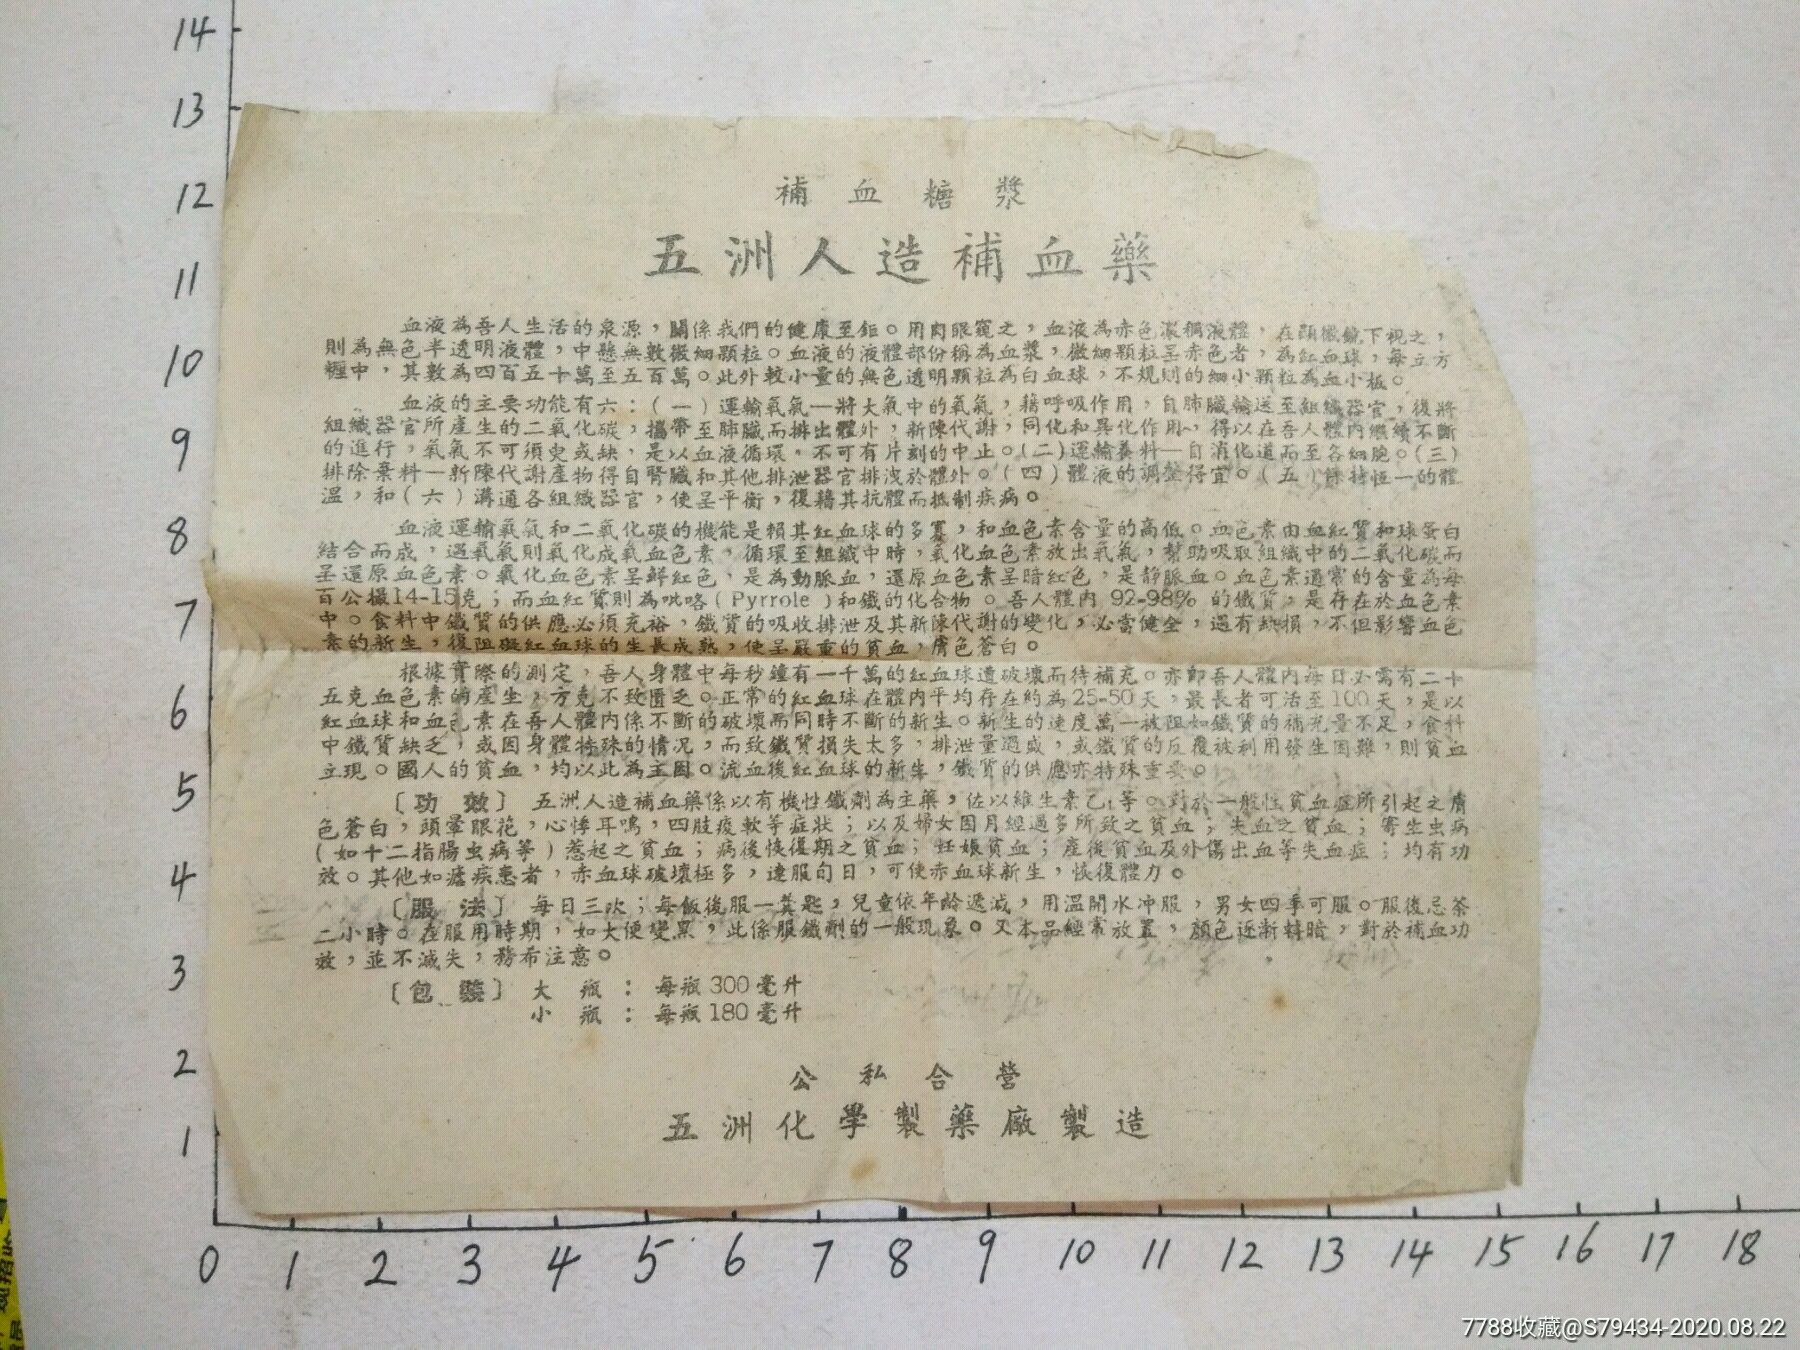 補血糖漿
五洲人造補血藥
血液為吾人生活的泉源，關係我們的健康至鉅。用肉眼窺之，血液為赤色濃稠液體，在顯微鏡下視之，
則為無色半透明液體，中懸無數微細顆粒。血液的液體部份稱為血漿，微細顆粒呈赤色者，為紅血球，每立方
糎中，其數為四百五十萬至五百萬。此外較小量的無色透明顆粒為白血球，不規則的細小顆粒為血小板。
血液的主要功能有六：(一)運輸氧氣—將大氣中的氧氣，藉呼吸作用，自肺臟輸送至組織器官，復將
組織器官所產生的二氧化碳，攜帶至肺臟而排出體外，新陳代謝，同化和異化作用，得以在吾人體內繼續不斷
的進行，氧氣不可須臾或缺，是以血液循環，不可有片刻的中止。(二)運輸養料—自消化道而至各細胞。(三)
排除棄料—新陳代謝產物得自腎臟和其他排泄器官排洩於體外。(四)體液的調整得宜。(五)保持恆一的體
溫，和(六)溝通各組織器官，使呈平衡，復藉其抗體而抵制疾病。
血液運輸氧氣和二氧化碳的機能是賴其紅血球的多寡，和血色素含量的高低。血色素由血紅質和球蛋白
結合而成，遇氧氣則氧化成氧血色素，循環至組織中時，氧化血色素放出氧氣，幫助吸取組織中的二氧化碳而
呈還原血色素。氧化血色素呈鮮紅色，是為動脈血，還原血色素呈暗紅色，是靜脈血。血色素通常的含量為每
百公撮14-15克；而血紅質則為吡咯(Pyrrole)和鐵的化合物。吾人體內 92-98% 的鐵質，是存在於血色素
中。食料中鐵質的供應必須充裕，鐵質的吸收排泄及其新陳代謝的變化，必當健全，遇有缺損，不但影響血色
素的新生，復阻礙紅血球的生長成熟，使呈嚴重的貧血，膚色蒼白。
根據實際的測定，吾人身體中每秒鐘有一千萬的紅血球遭破壞而待補充。亦即吾人體內每日必需有二十
五克血色素的產生，方克不致匱乏。正常的紅血球在體內平均存在約為25-50天，最長者可活至100天，是以
紅血球和血色素在吾人體內係不斷的破壞而同時不斷的新生。新生的速度萬一被阻如鐵質的補充量不足，食料
中鐵質缺乏，或因身體特殊的情況，而致鐵質損失太多，排泄量過盛，或鐵質的反覆被利用發生困難，則貧血
立現。國人的貧血，均以此為主因。流血後紅血球的新生，鐵質的供應亦特殊重要。
〔功效〕 五洲人造補血藥係以有機性鐵劑為主藥，佐以維生素乙₁等。對於一般性貧血症所引起之膚
色蒼白，頭暈眼花，心悸耳鳴，四肢痠軟等症狀；以及婦女因月經過多所致之貧血；失血之貧血；寄生虫病
(如十二指腸虫病等)惹起之貧血；病後恢復期之貧血；妊娠貧血；產後貧血及外傷出血等失血症；均有功
效。其他如瘧疾患者，赤血球破壞極多，連服旬日，可使赤血球新生，恢復體力。
〔服法〕 每日三次；每飯後服一羹匙，兒童依年齡遞減，用溫開水冲服，男女四季可服。服後忌茶
二小時。在服用時期，如大便變黑，此係服鐵劑的一般現象。又本品經常放置，顏色逐漸轉暗，對於補血功
效，並不減失，務希注意。
〔包裝〕 大瓶：每瓶300毫升
小瓶：每瓶180毫升
公私合營
五洲化學製藥廠製造
14
13
12
11
10
9
8
7
6
5
4
3
2
1
0 1 2 3 4 5 6 7 8 9 10 11 12 13 14 15 16 17 18
7788收藏@S79434-2020.08.22